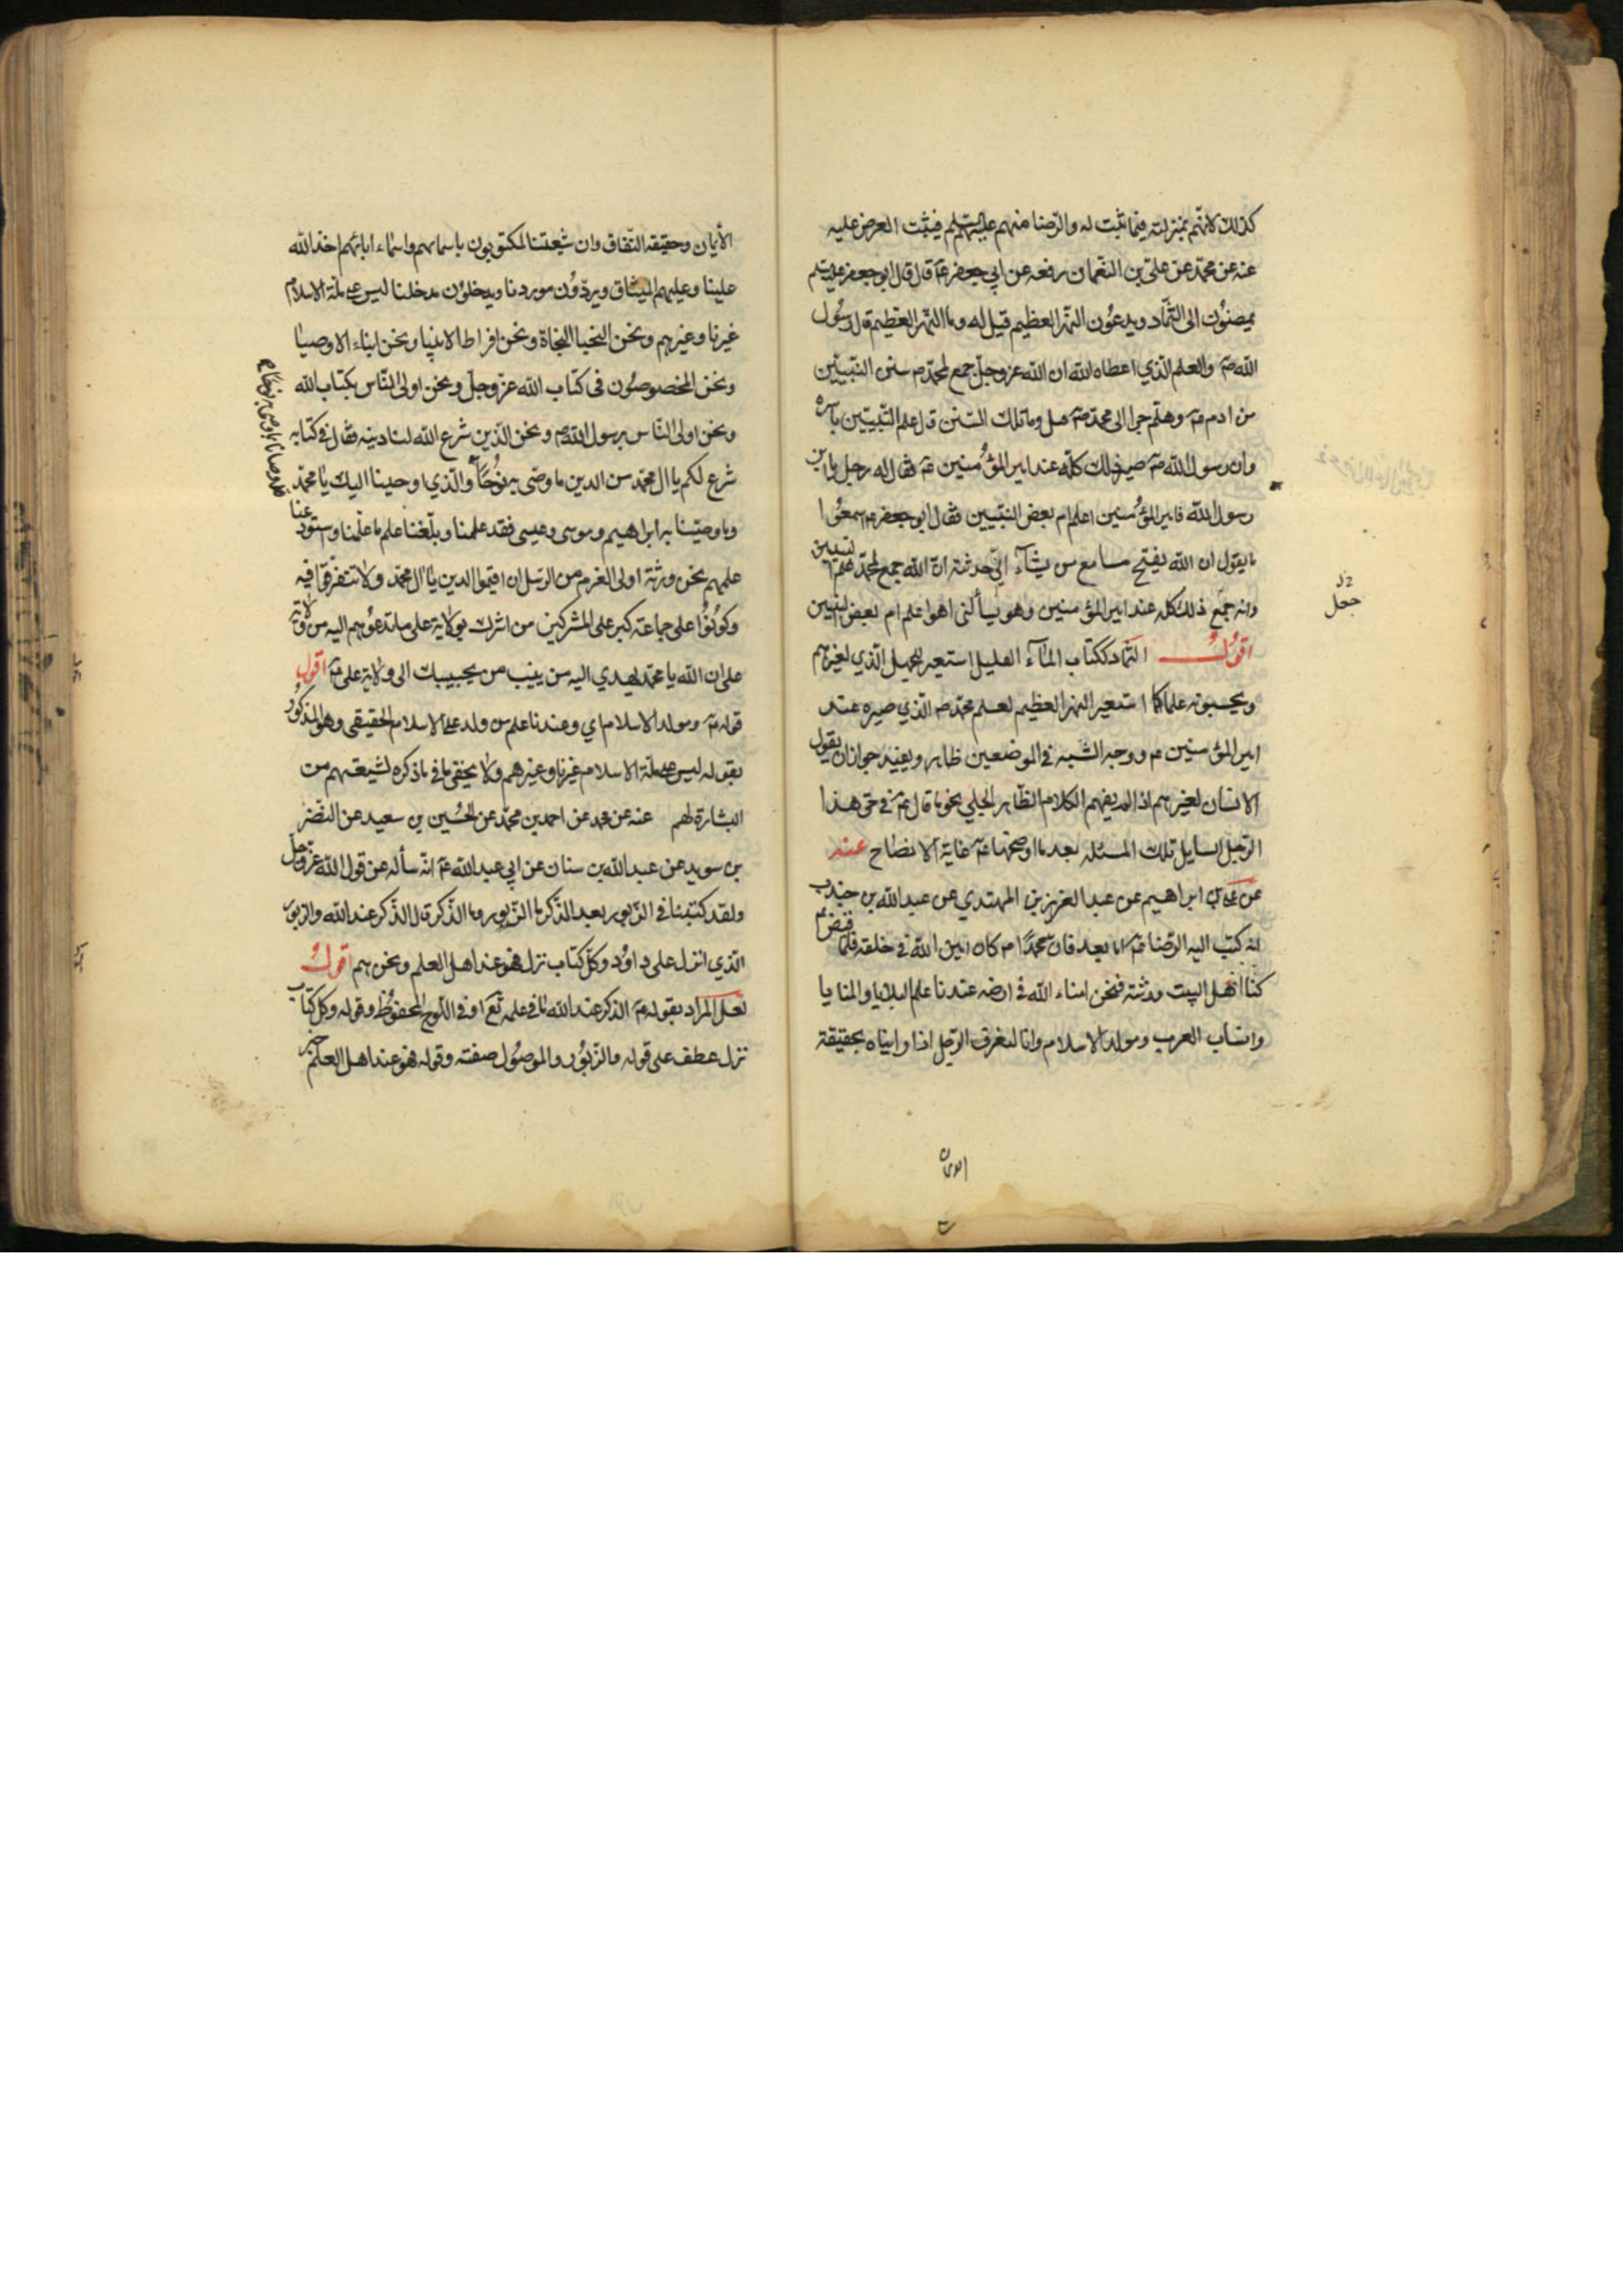 كذلك لانهم بمنزلته فيما ثبت له والرضا منهم عليهم السلم فيثبت العرض عليه
عنه عن محمد عن علي بن النعمان رفعه عن ابي جعفر عم قال قال ابو جعفر عليه السلم
يمصّون الى الثماد ويدعون النهر العظيم قيل له وما النهر العظيم قال رسول
الله ص والعلم الذي اعطاه الله ان الله عز وجل جمع لمحمد ص سنن النبيين
من ادم ع وهلم جرا الى محمد ص قيل وما تلك السنن قال علم النبيين باسره
وان رسول الله ص صير ذلك كله عند امير المؤمنين ع فقال له رجل يا ابن
رسول الله فامير المؤمنين اعلم ام بعض النبيين فقال ابو جعفر ع اسمعوا
ما يقول ان الله يفتح مسامع من يشآء اني حدثته ان الله جمع لمحمد علم النبيين
وانه جمع ذلك كله عند امير المؤمنين وهو يسألني اهو اعلم ام بعض النبيين
اقول الثماد ككتاب المآء القليل استعير للجهل الذي لغيرهم
ويحسبونه علما كما استعير النهر العظيم لعلم محمد ص الذي صيره عند
امير المؤمنين ع ووجه الشبه في الموضعين ظاهر ويفيد جواز ان يقول
الانسان لغيرهم اذا لم يفهم الكلام الظاهر الجلي نحو ما قال ع في حق هذا
الرجل السايل تلك المسئلة بعد ما اوضحها ع غاية الايضاح عنه
عن علي بن ابراهيم عن عبد العزيز بن المهتدي عن عبد الله بن جندب
انه كتب اليه الرضا ع اما بعد فان محمدًا ص كان امين الله في خلقه فلما قبض ص
كنا اهل البيت ورثته فنحن امناء الله في ارضه عندنا علم البلايا والمنايا
وانساب العرب ومولد الاسلام وانا لنعرف الرجل اذا راينا ه بحقيقة
جعل
الايمان وحقيقة النفاق وان شيعتنا لمكتوبون باسمائهم واسماء ابائهم اخذ الله
علينا وعليهم الميثاق ويردون موردنا ويدخلون مدخلنا ليس على ملة الاسلام
غيرنا وغيرهم ونحن النجبا النجاة ونحن افراط الانبيا ونحن ابناء الاوصيا
ونحن المخصوصون في كتاب الله عز وجل ونحن اولى الناس بكتاب الله
ونحن اولى الناس برسول الله ص ونحن الذين شرع الله لنا دينه فقال في كتابه
شرع لكم يا ال محمد من الدين ما وصى به نوحًا والذي اوحينا اليك يا محمد
وما وصينا به ابراهيم وموسى وعيسى فقد علمنا وبلغنا علم ما علمنا واستودعنا
علمهم نحن ورثة اولي العزم من الرسل ان اقيموا الدين يا ال محمد ولا تتفرقوا فيه
وكونوا على جماعة كبر على المشركين من اشرك بولاية علي ما تدعوهم اليه من ولاية
علي ان الله يا محمد يهدي اليه من ينيب من يجيبك الى ولاية علي ع اقول
قوله ع ومولد الاسلام اي وعندنا علم من ولد على الاسلام الحقيقي وهو المذكور
بقوله ليس على ملة الاسلام غيرنا وغيرهم ولا يخفى ما في ما ذكره لشيعتهم من
البشارة لهم عنه عن محمد عن احمد بن محمد عن الحسين بن سعيد عن النضر
بن سويد عن عبد الله بن سنان عن ابي عبد الله ع انه سأله عن قول الله عز وجل
ولقد كتبنا في الزبور من بعد الذكر ما الزبور وما الذكر قال الذكر عند الله والزبور
الذي انزل على داود وكل كتاب نزل فهو عند اهل العلم ونحن هم اقول
لعل المراد بقوله ع الذكر عند الله ما في علمه تعا او في اللوح المحفوظ وقوله وكل كتاب
نزل عطف على قوله والزبور والموصول صفته وقوله فهو عند اهل العلم خبر
الايمان